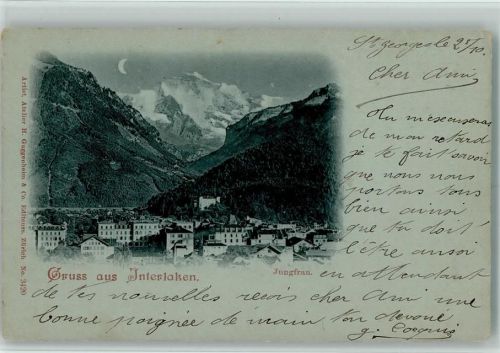 St georges le 25/10
Cher Ami
Tu m'excuseras
de mon retard
je te fait savoir
que nous nous
portons tous
bien ainsi
que tu doit
l'être aussi
en attendant
de tes nouvelles recois cher Ami une
bonne poignée de main ton devoué
g.
Gruss aus Interlaken.
Jungfrau.
Artist. Atelier H. Guggenheim & Co. Editeurs, Zürich No. 3420